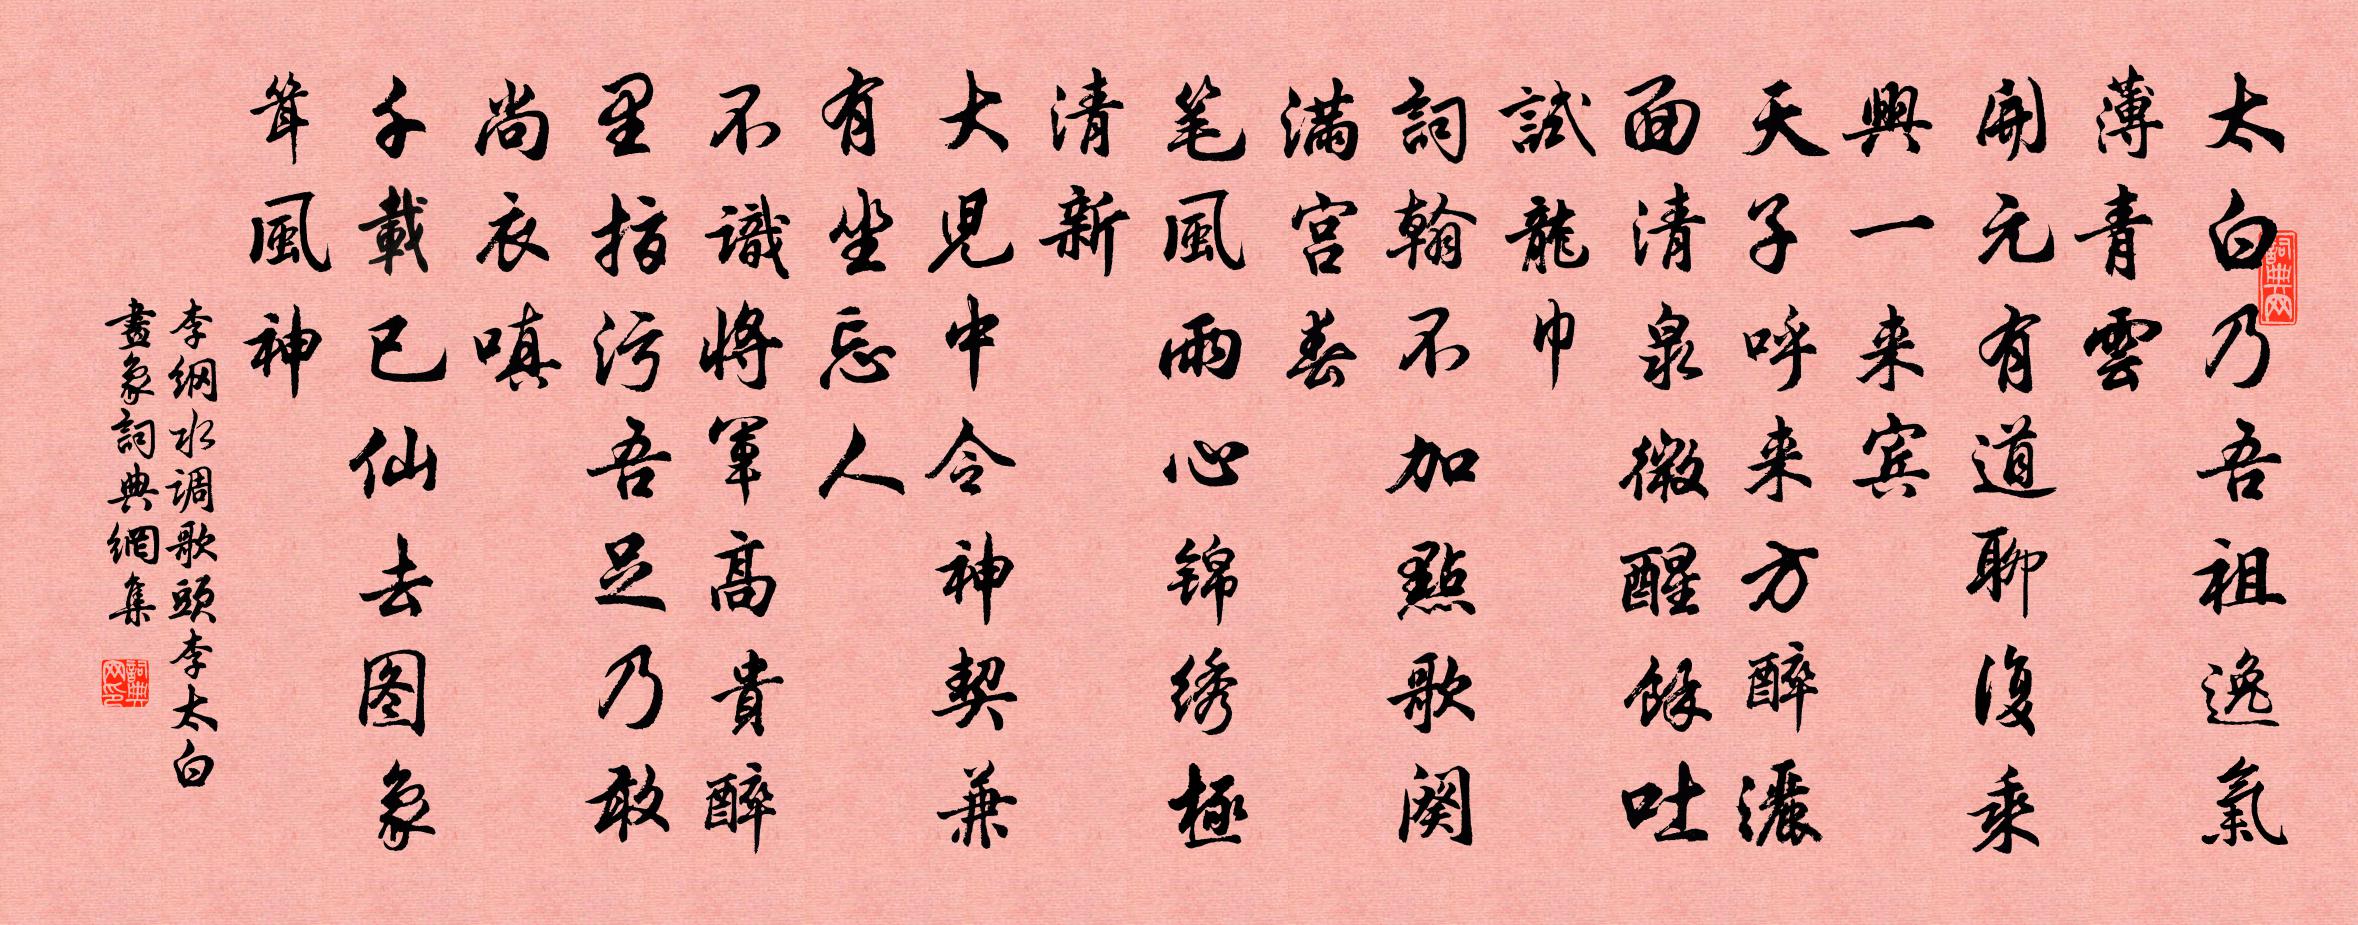 太白乃吾祖逸氣
薄青雲
開元有道聊復乘
興一来宾
天子呼来方醉灑
面清泉微醒餘吐
試龍巾
詞翰不加點歌闋
满宫春
笔風雨心锦绣極
清新
大兒中令神契兼
有坐忘人
不識将軍高貴醉
里指污吾足乃敢
尚衣嗔
千載已仙去图象
耸風神
李纲水调歌頭李太白
畫象詞典網集
詞典网
詞典网印